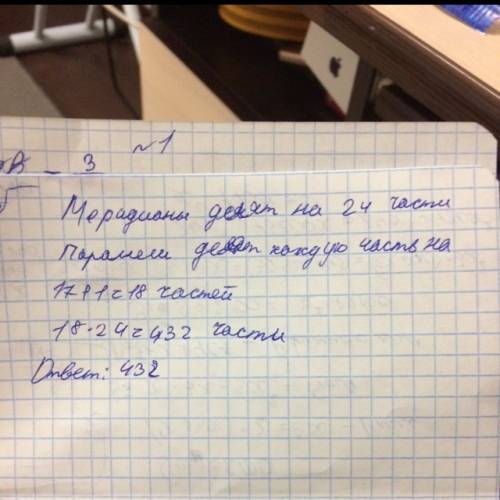 №1
3
Мерадианы делят на 24 части
Паралели делят каждую часть на
17+1=18 частей
18·24=432 части
Ответ: 432